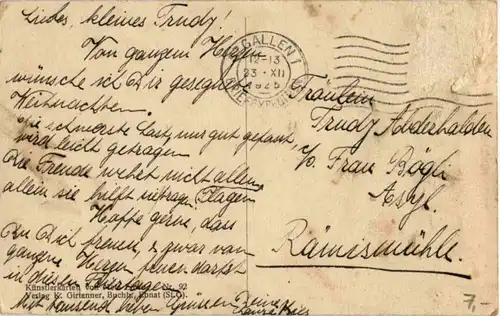 Liebes, kleines Trudy!
Von ganzem Herzen
wünsche ich Dir gesegnete
Weihnachten.
Die schwerste Last, nur gut gefasst,
wird leicht getragen
Die Freude webet nicht allein,
allein sie hilft
Plagen
Hoffe gerne, dass
Du Dich freuen, zwar von
ganzem Herzen freuen darfst
in diesen
Mit tausend lieben Grüssen Deine
ST. GALLEN 1
12-13
23. XII
1925
Fräulein
Trudy Abderhalden
c/o Frau Bögli
Asyl.
Rämismühle.
Künstlerkarten von
Nr. 92
Verlag K. Girtanner, Buchh., Ebnat (SLG).
7,-